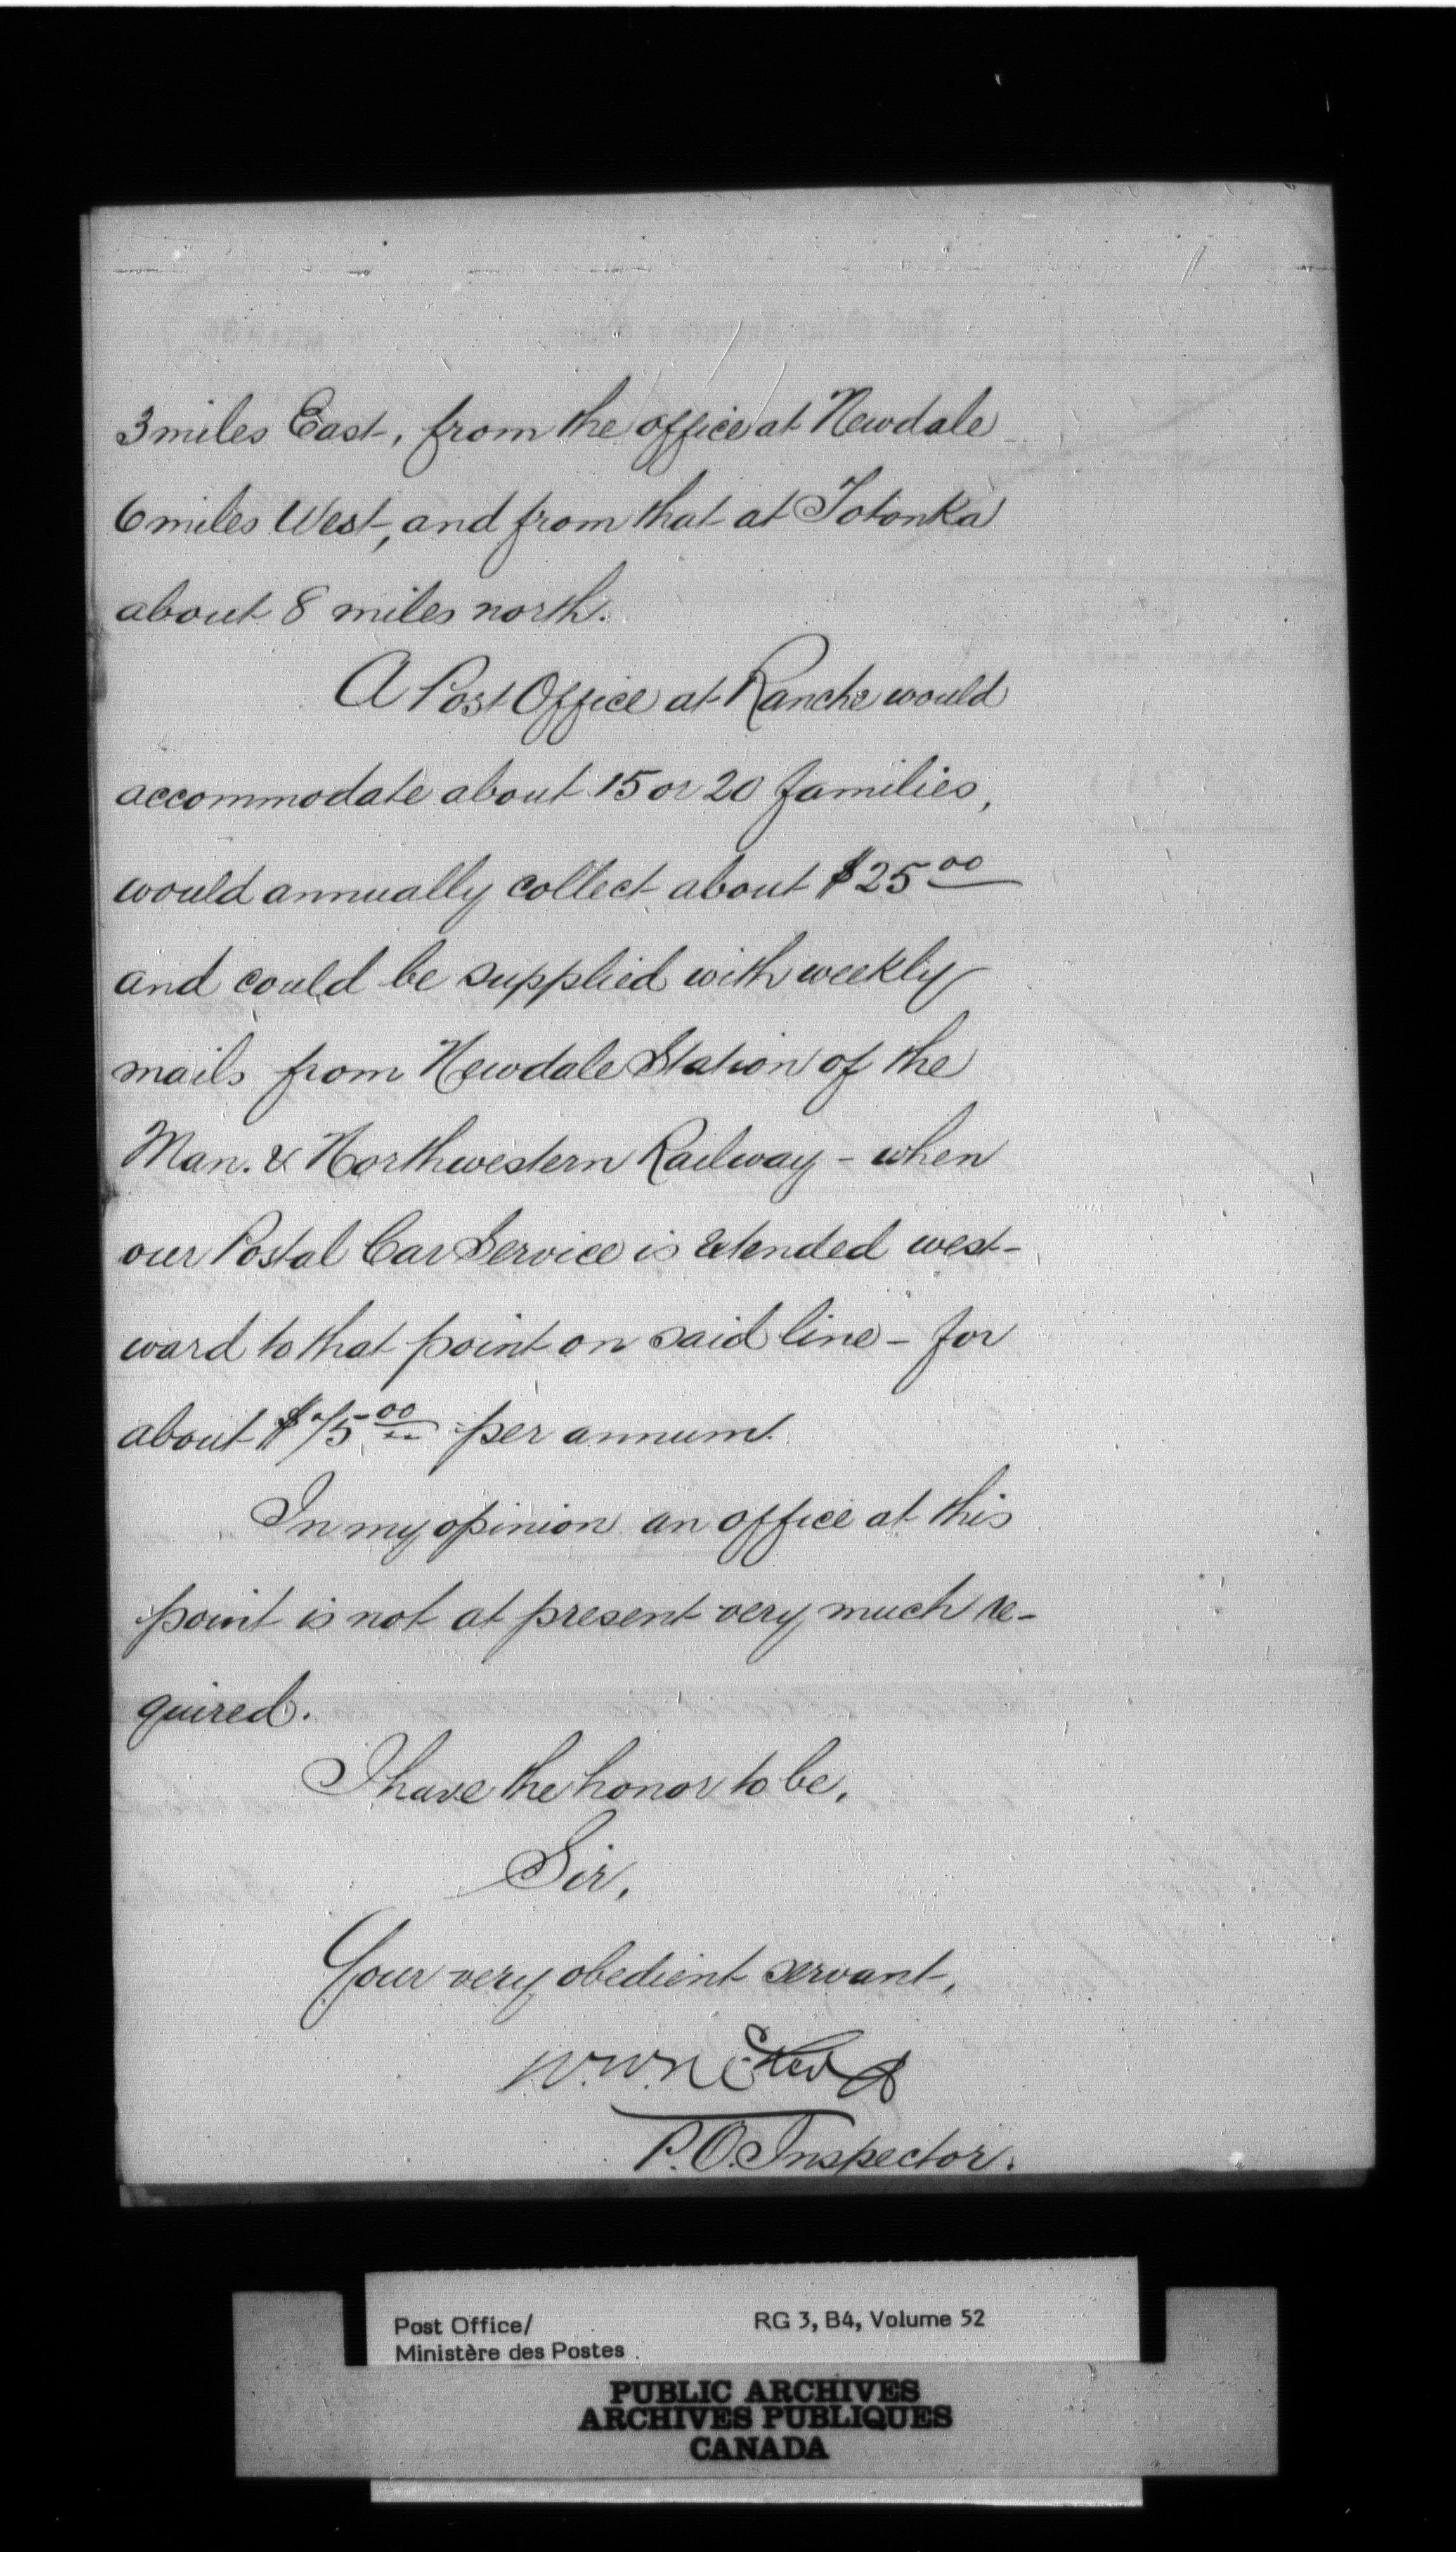 3 miles East, from the office at Newdale
6 miles West, and from that at Totonka
about 8 miles north.
A Post Office at Ranche would
accommodate about 15 or 20 families,
would annually collect about $25 00
and could be supplied with weekly
mails from Newdale Station of the
Man. & Northwestern Railway - when
our Postal Car Service is extended west-
ward to that point on said line - for
about $75 00 per annum.
In my opinion an office at this
point is not at present very much re-
quired.
I have the honor to be,
Sir,
Your very obedient servant,
W. W. McLeod
P.O. Inspector.
Post Office/
Ministère des Postes
RG 3, B4, Volume 52
PUBLIC ARCHIVES
ARCHIVES PUBLIQUES
CANADA